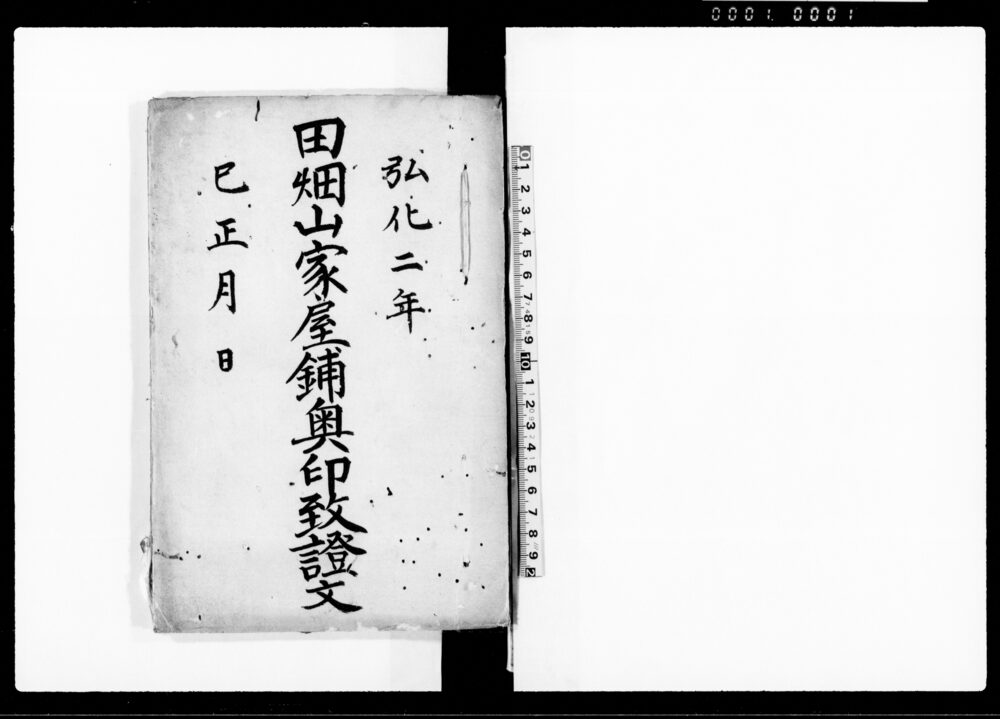 0001 0001
弘化二年
田畑山家屋鋪奥印致證文
巳正月日
0 1 2 3 4 5 6 7 8 9 10 1 2 3 4 5 6 7 8 9 2